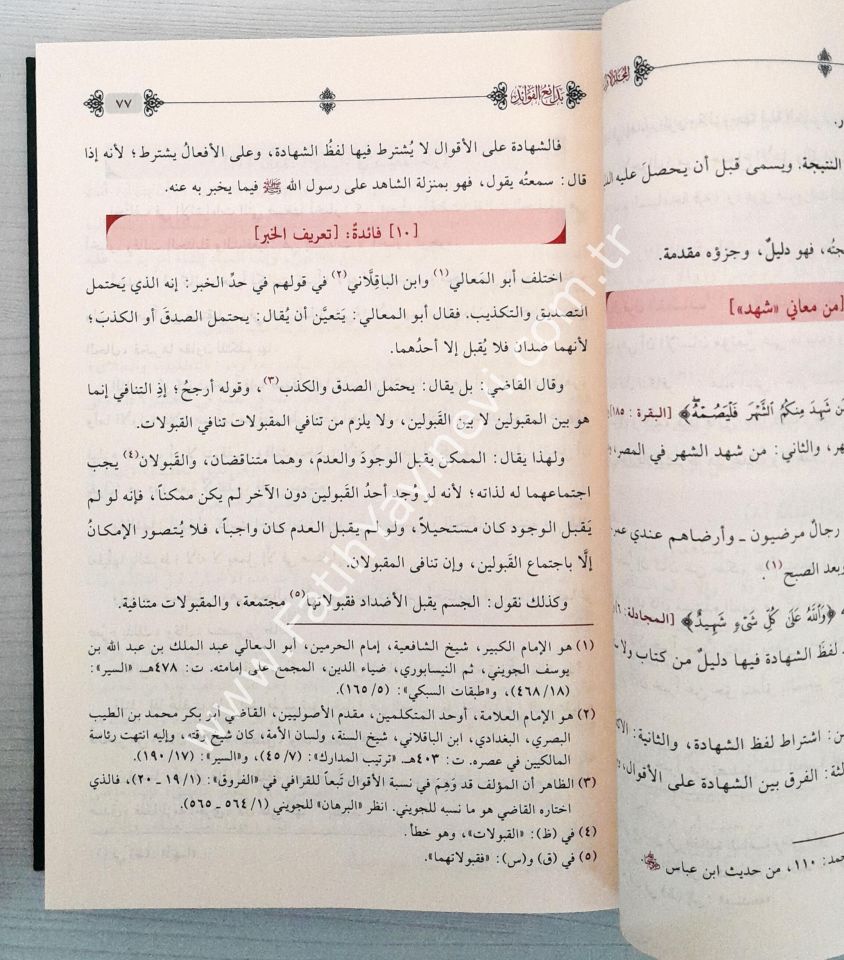 المجلد الأول
النتيجة. ويسمى قبل أن يحصل عليه
فهو دليلٌ، وجزؤه مقدمة.
[من معاني «شهد»]
شَهِدَ مِنكُمُ الشَّهْرَ فَلْيَصُمْهُ﴾ [البقرة: ١٨٥]
والثاني: من شهد الشهر في المصر،
رجالٌ مرضيون ـ وأرضاهم عندي
وبعد الصبح(١).
﴿وَاللَّهُ عَلَىٰ كُلِّ شَيْءٍ شَهِيدٌ﴾ [المجادلة:
لفظَ الشهادة فيها دليلٌ من كتاب
اشتراط لفظ الشهادة، والثانية:
الفرق بين الشهادة على الأقوال،
١١٠، من حديث ابن عباس
بدائع الفوائد
٧٧
فالشهادة على الأقوال لا يُشترط فيها لفظُ الشهادة، وعلى الأفعالُ يشترط؛ لأنه إذا
قال: سمعتُه يقول، فهو بمنزلة الشاهد على رسول الله ﷺ فيما يخبر به عنه.
[١٠] فائدةٌ: [تعريف الخبر]
اختلف أبو المَعالي(١) وابن الباقِلَّاني(٢) في قولهم في حدِّ الخبر: إنه الذي يَحتمل
التصديق والتكذيب. فقال أبو المعالي: يَتعيَّن أن يُقال: يحتمل الصدقَ أو الكذبَ؛
لأنهما ضدان فلا يُقبل إلا أحدُهما.
وقال القاضي: بل يقال: يحتمل الصدق والكذب(٣)، وقوله أرجحُ؛ إذِ التنافي إنما
هو بين المقبولين لا بين القَبولين، ولا يلزم من تنافي المقبولات تنافي القبولات.
ولهذا يقال: الممكن يقبل الوجودَ والعدمَ، وهما متناقضان، والقَبولان(٤) يجب
اجتماعهما له لذاته؛ لأنه لو وُجد أحدُ القَبولين دون الآخر لم يكن ممكناً، فإنه لو لم
يَقبل الوجود كان مستحيلاً، ولو لم يقبل العدم كان واجباً، فلا يُتصور الإمكانُ
إلَّا باجتماع القَبولين، وإن تنافى المقبولان.
وكذلك نقول: الجسم يقبل الأضداد فقبولاتها(٥) مجتمعة، والمقبولات متنافية.
(١) هو الإمام الكبير، شيخ الشافعية، إمام الحرمين، أبو المعالي عبد الملك بن عبد الله بن
يوسف الجويني، ثم النيسابوري، ضياء الدين، المجمع على إمامته. ت: ٤٧٨هـ. «السير»:
(١٨/ ٤٦٨)، و«طبقات السبكي»: (٥/ ١٦٥).
(٢) هو الإمام العلامة، أوحد المتكلمين، مقدم الأصوليين، القاضي أبو بكر محمد بن الطيب
البصري، البغدادي، ابن الباقلاني، شيخ السنة، ولسان الأمة، كان شيخ وقته، وإليه انتهت رئاسة
المالكيين في عصره. ت: ٤٠٣هـ «ترتيب المدارك»: (٧/ ٤٥)، و«السير»: (١٧/ ١٩٠).
(٣) الظاهر أن المؤلف قد وَهِمَ في نسبة الأقوال تَبعاً للقرافي في «الفروق»: (١/ ١٩ ـ ٢٠)، فالذي
اختاره القاضي هو ما نسبه للجويني. انظر «البرهان» للجويني (١/ ٥٦٤ ـ ٥٦٥).
(٤) في (ظ): «القبولات»، وهو خطأ.
(٥) في (ق) و(س): «فقبولاتهما».
www.FatihYayinevi.com.tr